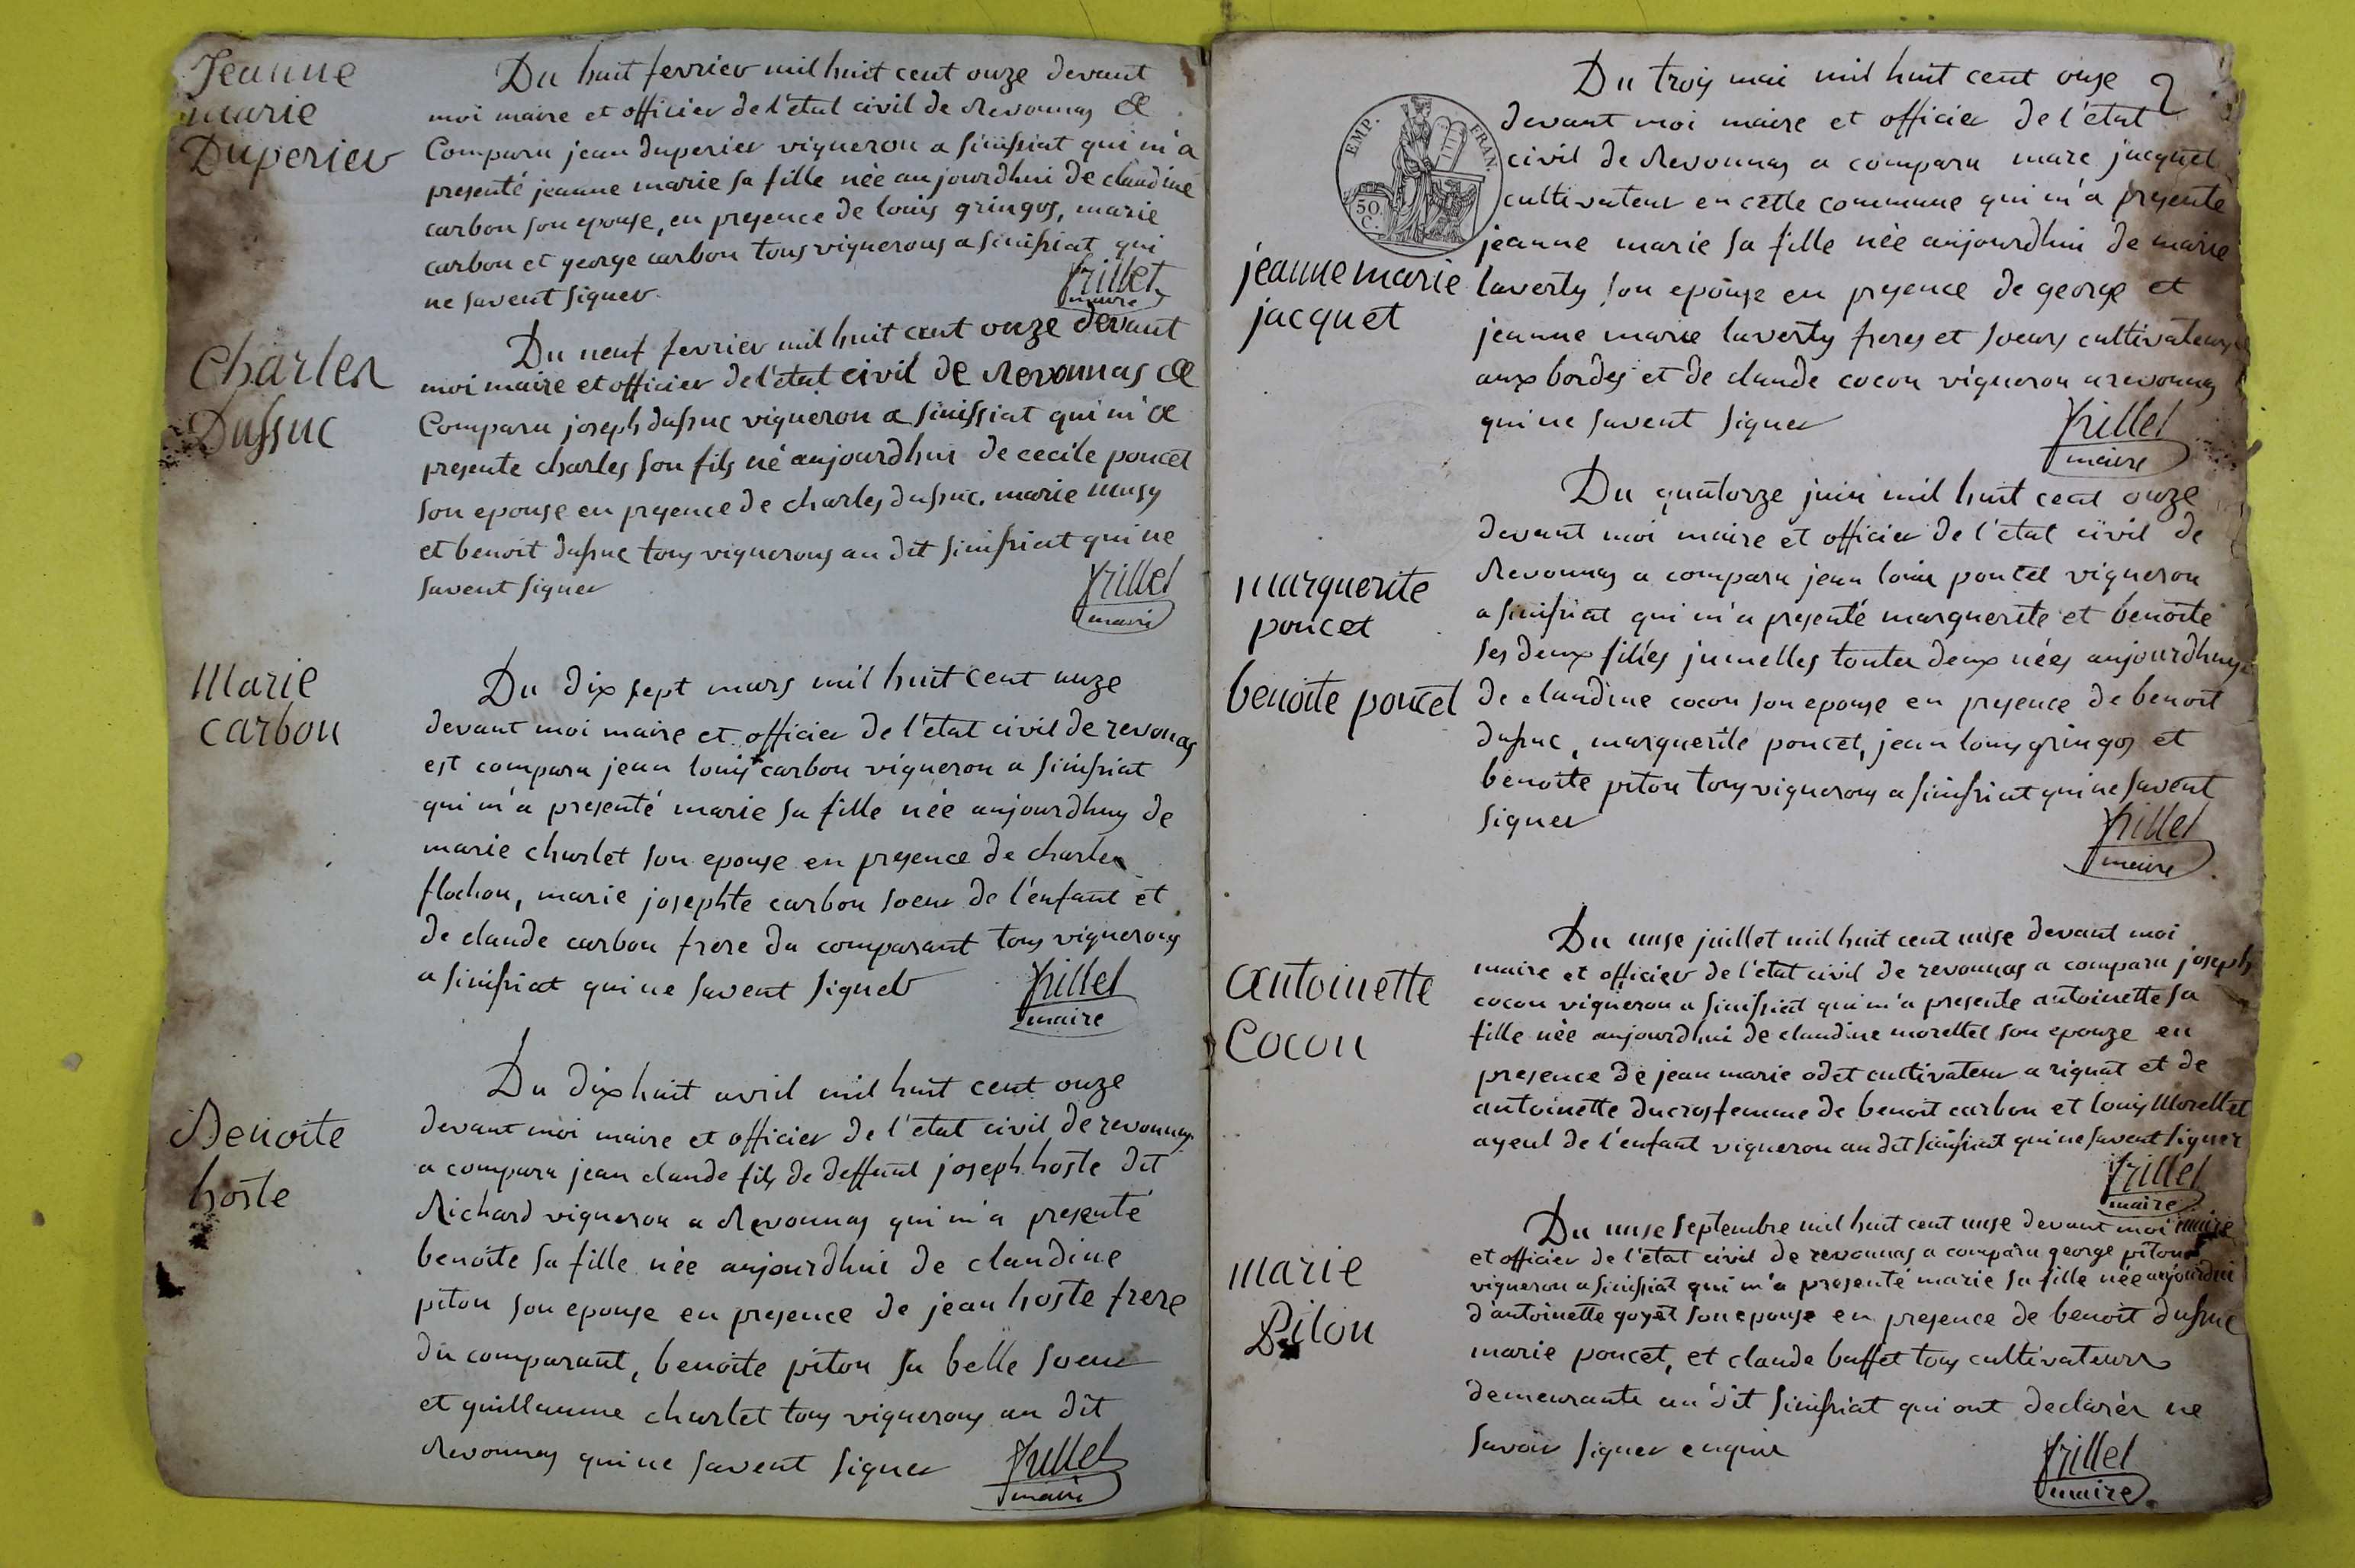 Jeanne
marie
Duperier
Du huit fevrier mil huit cent onze devant
moi maire et officier de l'état civil de Revonnas a
Comparu jean duperier vigneron a simissiat qui m'a
presenté jeanne marie sa fille née aujourdhui de claudine
carbon son epouse, en presence de louis gringos, marie
carbon et george carbon tous vignerons a simissiat qui
ne savent signer
frillet
maire
Charles
Dussuc
Du neuf fevrier mil huit cent onze devant
moi maire et officier de l'etat civil de Revonnas a
Comparu joseph dussuc vigneron a simissiat qui m'a
presente charles son fils né aujourdhui de cecile poncet
son epouse en presence de charles dussuc, marie musy
et benoit dussuc tous vignerons au dit simissiat qui ne
savent signer
frillet
maire
Marie
carbon
Du dix sept mars mil huit cent onze
devant moi maire et officier de l'etat civil de revonas
est comparu jean louis carbon vigneron a simissiat
qui m'a presenté marie sa fille née aujourdhuy de
marie charlet son epouse en presence de charles
flochon, marie josephte carbon soeur de l'enfant et
de claude carbon frere du comparant tous vignerons
a simissiat qui ne savent signer
frillet
maire
Benoite
hoste
Du dix huit avril mil huit cent onze
devant moi maire et officier de l'etat civil de revonnas
a comparu jean claude fils de deffunt joseph hoste dit
Richard vigneron a Revonnas qui m'a presenté
benoite sa fille née aujourdhui de claudine
piton son epouse en presence de jean hoste frere
du comparant, benoite piton sa belle soeur
et guillaume charlet tous vignerons au dit
Revonnas qui ne savent signer
frillet
maire
EMP. FRAN.
50
C.
jeanne marie
jacquet
Du trois mai mil huit cent onze
devant moi maire et officier de l'etat
civil de Revonnas a comparu marc jacquet
cultivateur en cette commune qui m'a presente
jeanne marie sa fille née aujourdhui de marie
laverty son epouse en presence de george et
jeanne marie laverty freres et soeurs cultivateurs
aux bordes et de claude cocon vigneron a revonnas
qui ne savent signer
frillet
maire
marguerite
poncet
benoite poncet
Du quatorze juin mil huit cent onze
devant moi maire et officier de l'etat civil de
Revonnas a comparu jean louis poncet vigneron
a simissiat qui m'a presenté marguerite et benoite
ses deux filles jumelles toutes deux nées aujourdhuy
de claudine cocon son epouse en presence de benoit
dussuc, marguerite poncet, jean louis gringos et
benoite piton tous vignerons a simissiat qui ne savent
signer
frillet
maire
Antoinette
Cocon
Du onse juillet mil huit cent onse devant moi
maire et officier de l'etat civil de revonnas a comparu joseph
cocon vigneron a simissiat qui m'a presente antoinette sa
fille née aujourdhui de claudine morellet son epouze en
presence de jean marie odet cultivateur a rignat et de
antoinette ducros femme de benoit carbon et louis Morellet
ayeul de l'enfant vigneron au dit simissiat qui ne savent signer
frillet
maire
marie
Piton
Du onse septembre mil huit cent onse devant moi maire
et officier de l'etat civil de revonnas a comparu george piton
vigneron a simissiat qui m'a presenté marie sa fille née aujourdhui
d'antoinette goyet son epouse en presence de benoit dussuc
marie poncet, et claude buffet tous cultivateurs
demeurants au dit simissiat qui ont declarés ne
savoir signer enquis
frillet
maire